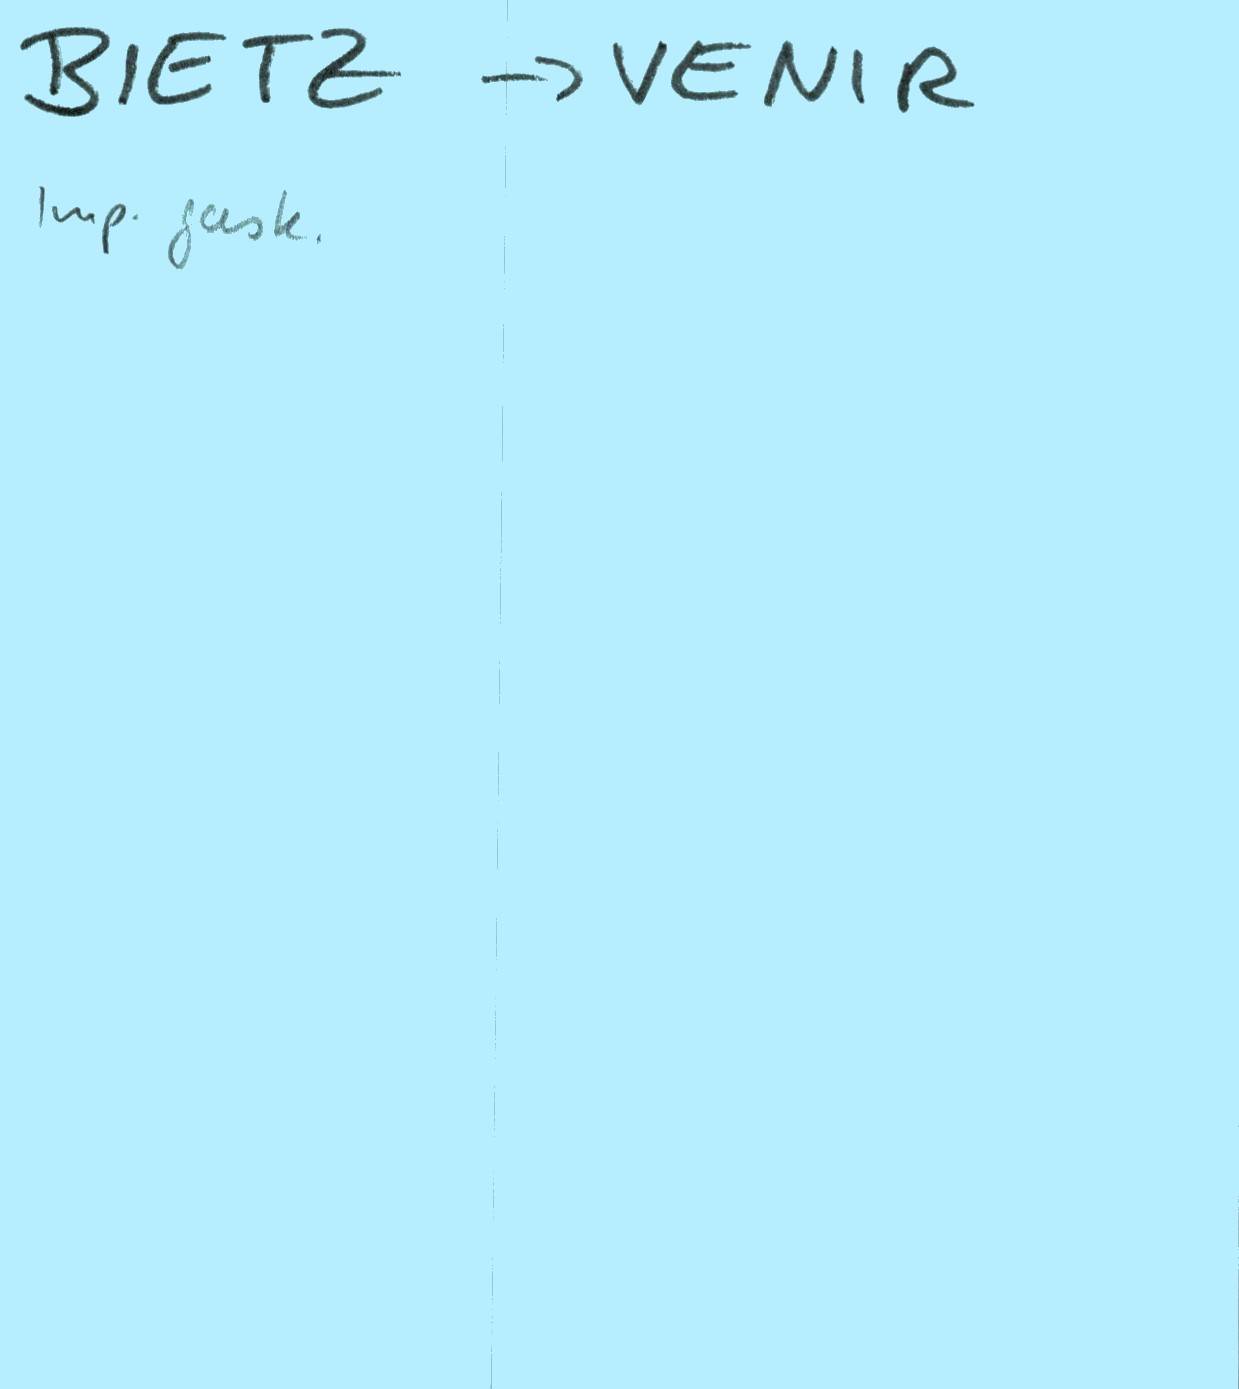 BIETZ → VENIR
Imp. gask.